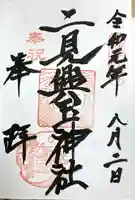 令和元年
八月二日
奉祝
二見興玉神社
奉拝